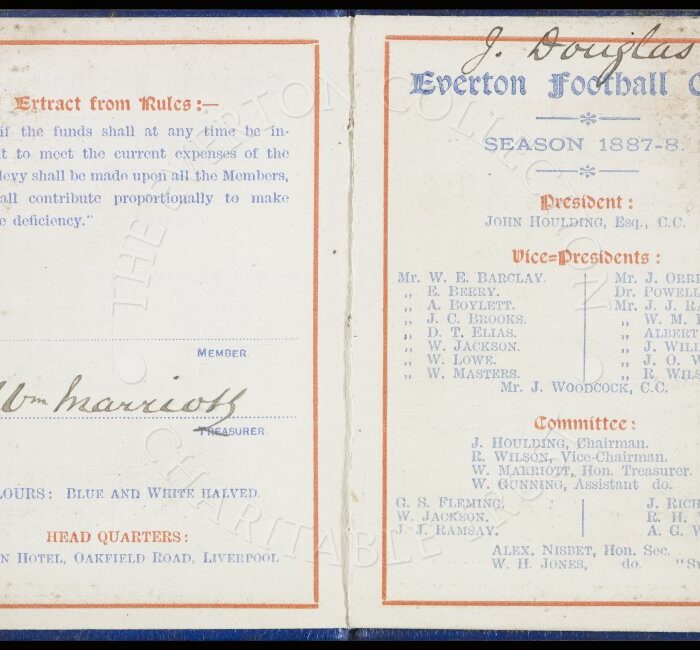 Extract from Rules :—
if the funds shall at any time be in-
t to meet the current expenses of the
levy shall be made upon all the Members,
all contribute proportionally to make
e deficiency."
MEMBER.
Wm Marriott
TREASURER.
LOURS: BLUE AND WHITE HALVED.
HEAD QUARTERS:
N HOTEL, OAKFIELD ROAD, LIVERPOOL
J. Douglas
Everton Football C
SEASON 1887-8.
President :
JOHN HOULDING, Esq., C.C.
Vice=Presidents :
Mr. W. E. BARCLAY. Mr. J. ORR
„ E. BERRY. Dr. POWELL
„ A. BOYLETT. Mr. J. J. RA
„ J. C. BROOKS. „ W. M.
„ D. T. ELIAS. „ ALBERT
„ W. JACKSON. „ J. WILL
„ W. LOWE. „ J. O. W
„ W. MASTERS. „ R. WILS
Mr. J. WOODCOCK, C.C.
Committee :
J. HOULDING, Chairman.
R. WILSON, Vice-Chairman.
W. MARRIOTT, Hon. Treasurer.
W. GUNNING, Assistant do.
G. S. FLEMING. J. RICH
W. JACKSON. R. H.
J. J. RAMSAY. A. G. W
ALEX. NISBET, Hon. Sec.
W. H. JONES, do. "S
THE EVERTON COLLECTION
CHARITABLE TRUST